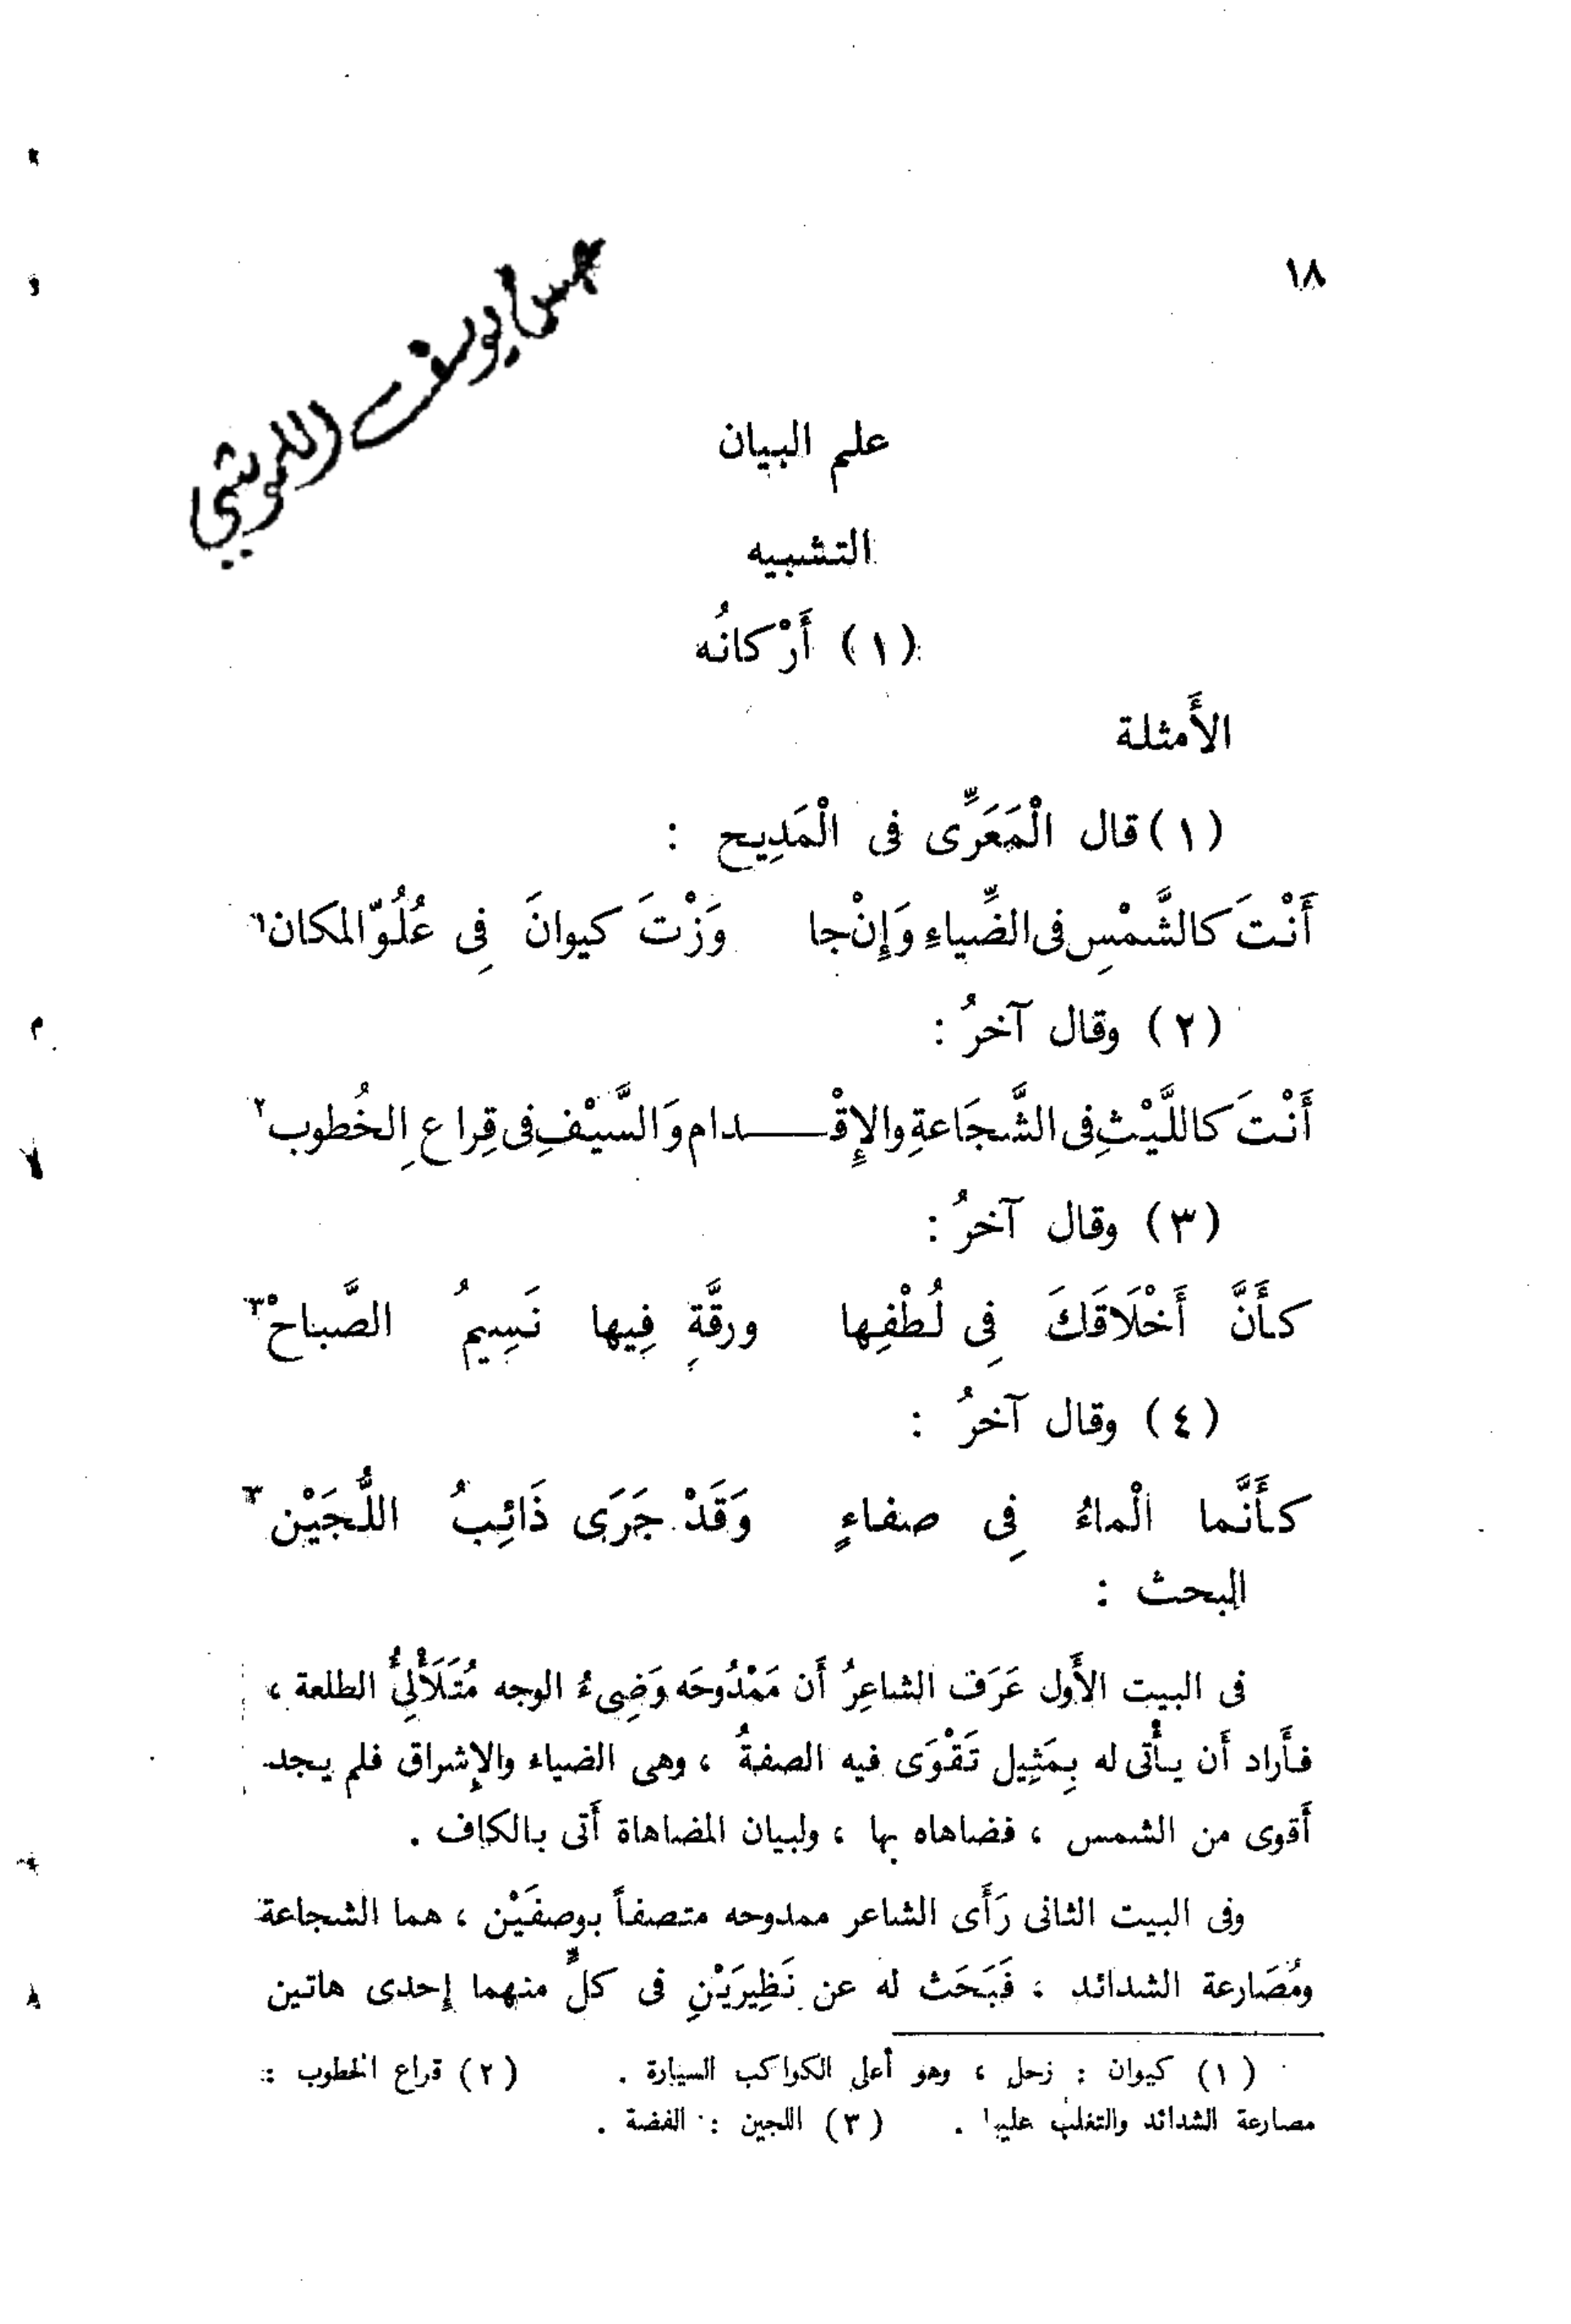 ١٨
يوسف
علم البيان
التشبيه
(١) أَرْكانُه
الأَمثلة
(١) قال الْمَعَرِّى فى الْمَدِيح :
أَنْتَ كالشَّمْسِ فى الضِّياءِ وَإِنْ جا وَزْتَ كيوانَ فِى عُلُوّ المكان١
(٢) وقال آخرُ :
أَنْتَ كاللَّيْثِ فى الشَّجَاعةِ والإِقْـــدام وَالسَّيْفِ فى قِراعِ الخُطوب٢
(٣) وقال آخرُ :
كأَنَّ أَخْلَاقَكَ فِى لُطْفِها ورقَّةٍ فِيها نَسِيمُ الصَّباحْ٣
(٤) وقال آخرُ :
كأَنَّما الْماءُ فِى صفاءٍ وَقَدْ جَرَى ذَائِبُ اللُّجَيْن٣
البحث :
فى البيت الأَول عَرَف الشاعِرُ أَن مَمْدُوحَه وَضِىءُ الوجه مُتَلَأْلِئُ الطلعة ،
فأَراد أَن يأْتى له بِمَثِيل تَقْوَى فيه الصفةُ ، وهى الضياء والإِشراق فلم يجد
أَقوى من الشمس ، فضاهاه بها ، ولبيان المضاهاة أَتى بالكاف .
وفى البيت الثانى رَأَى الشاعر ممدوحه متصفاً بوصفَيْن ، هما الشجاعة
ومُصَارعة الشدائد ، فَبَحَث له عن نَظِيرَيْنِ فى كلٍّ منهما إحدى هاتين
(١) كيوان : زحل ، وهو أعلى الكواكب السيارة . (٢) قراع الخطوب :
مصارعة الشدائد والتغلب عليها . (٣) اللجين : الفضة .